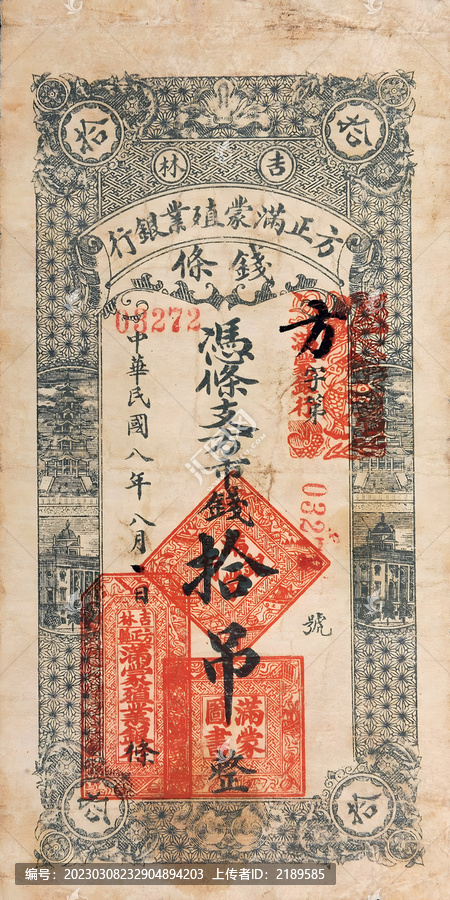 拾
拾
吉林
方正滿蒙殖業銀行
錢條
方字第
03272
號
憑條支市錢拾吊整
03272
中華民國八年八月 日
吉林
滿蒙殖業銀
條
滿蒙
圖書
拾
拾
编号：20230308232904894203 上传者ID：2189585